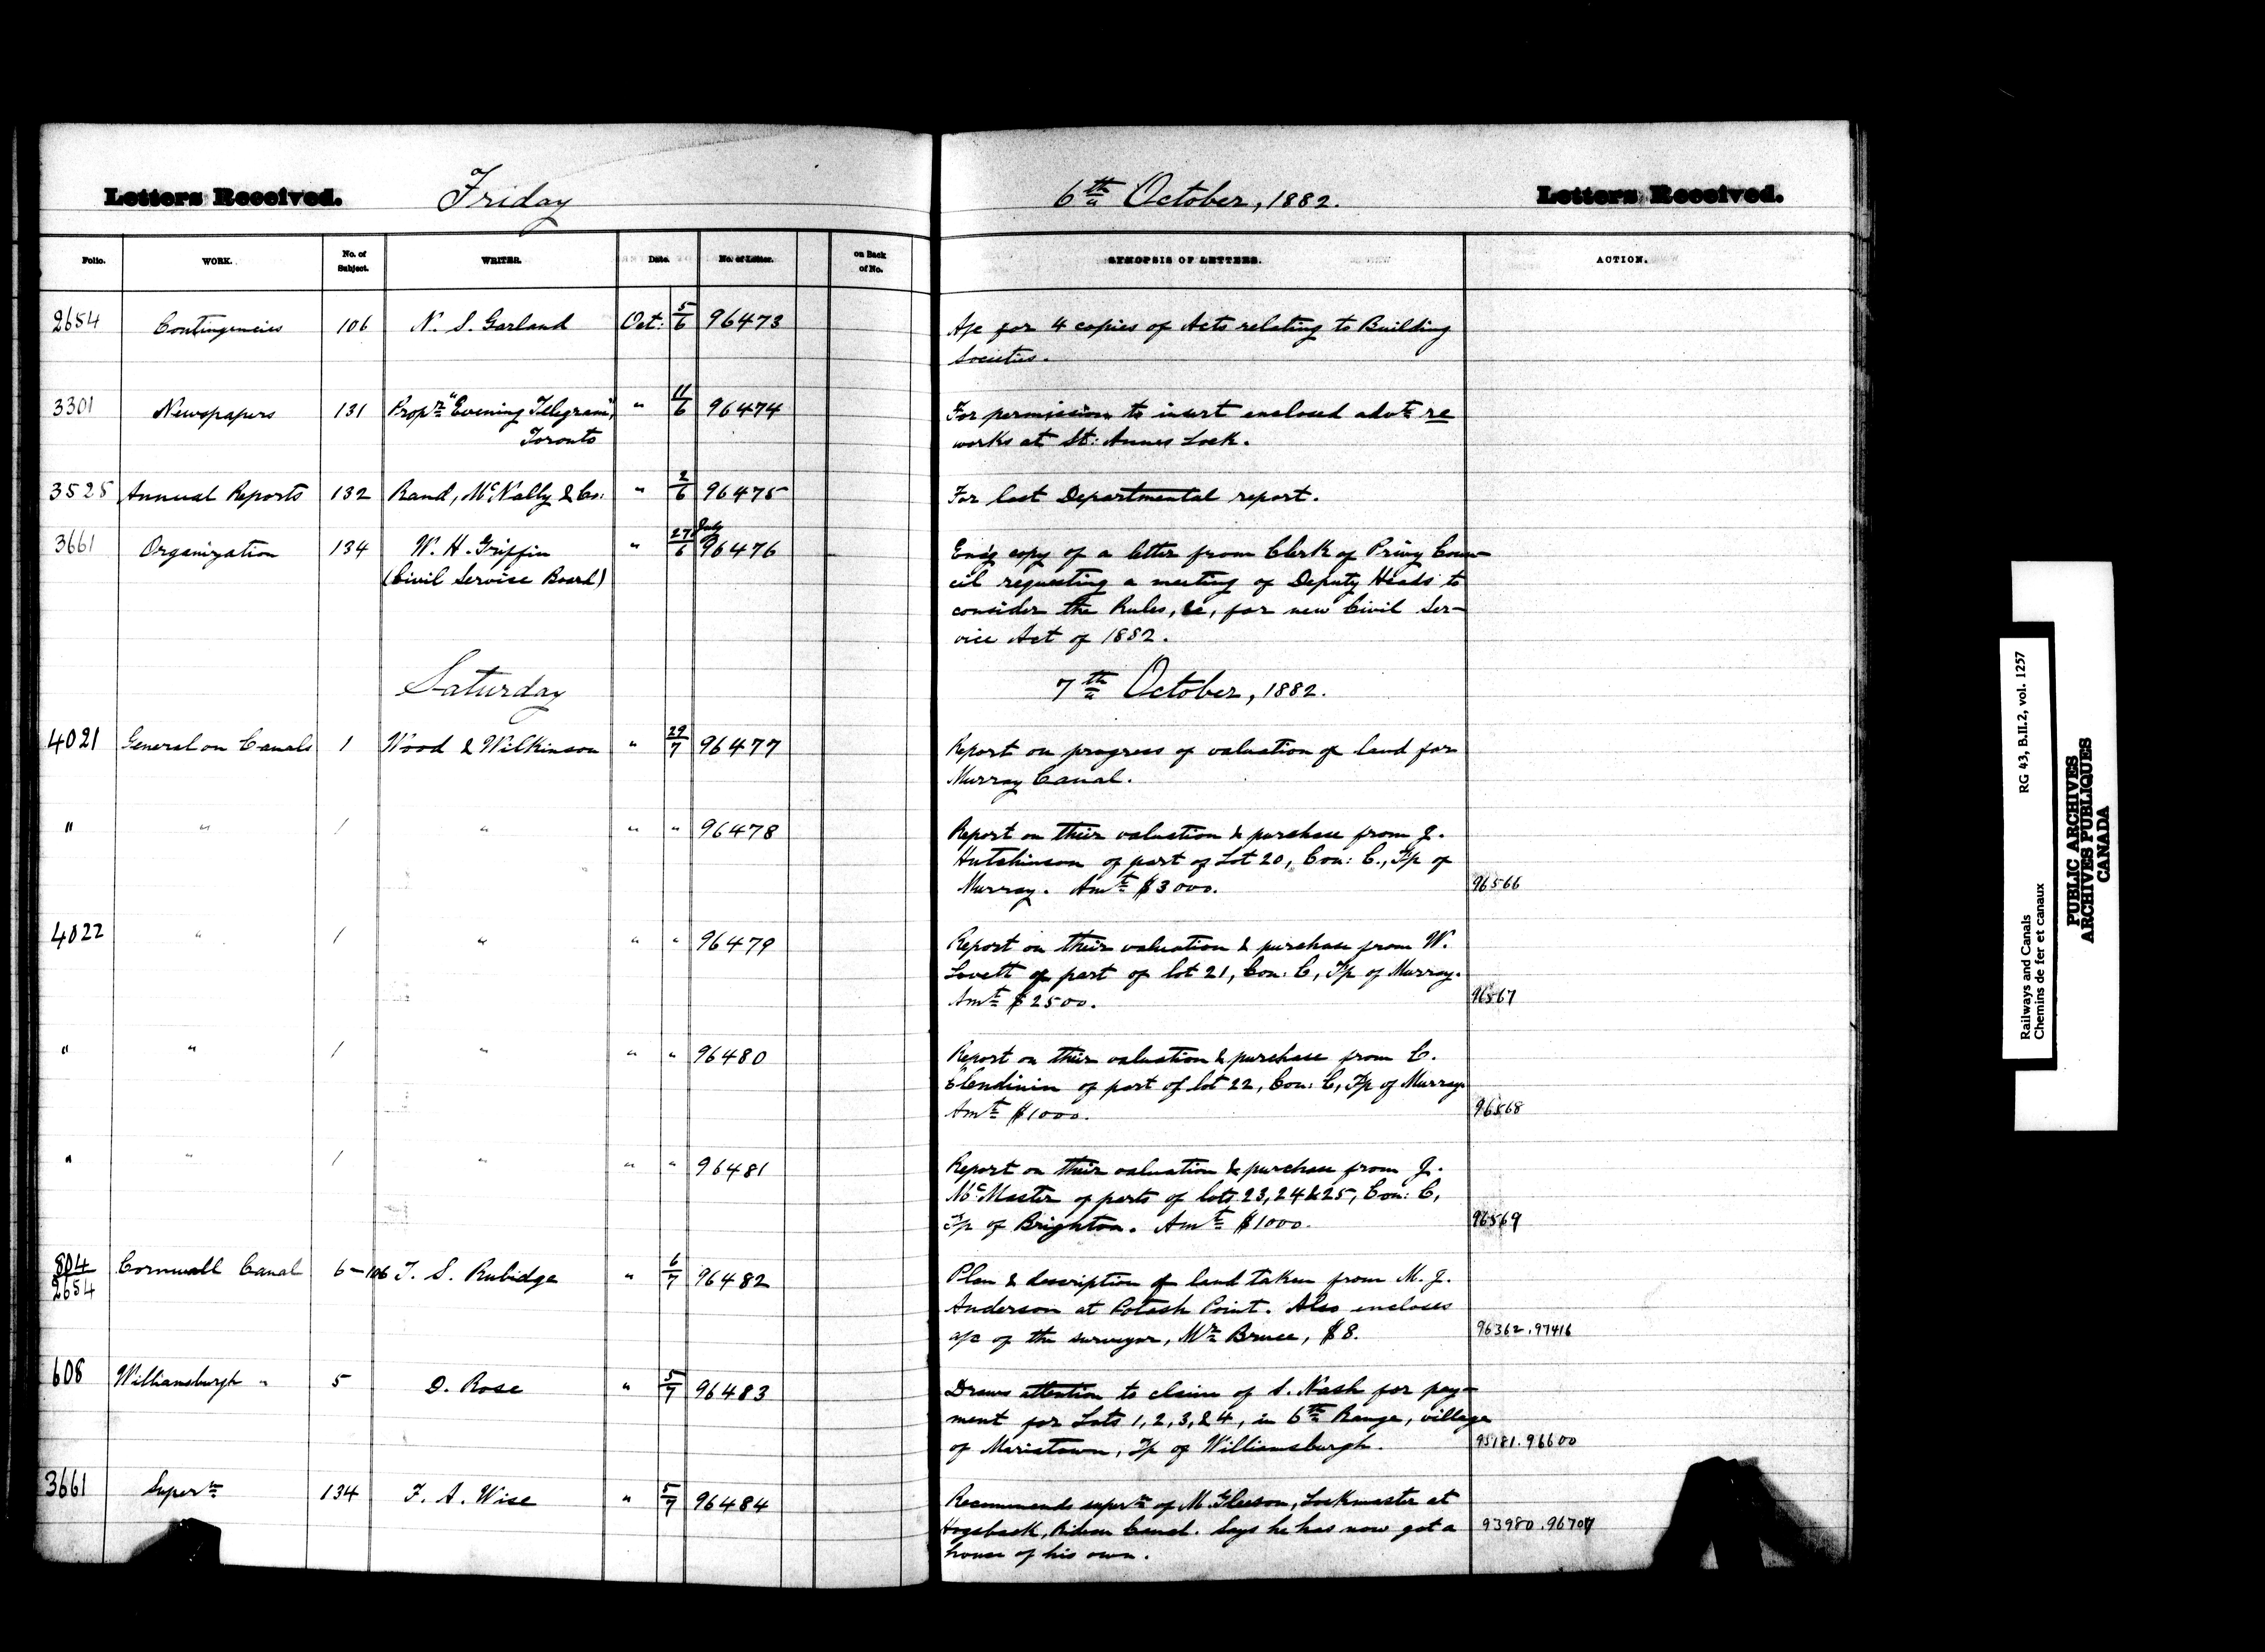 Letters Received. Friday 6th October, 1882. Letters Received.
Folio. WORK. No. of Subject. WRITER. Date. No. of Letter. on Back of No. SYNOPSIS OF LETTERS. ACTION.
2654 Contingencies 106 N. S. Garland Oct: 5/6 96473 A/c for 4 copies of Acts relating to Building
Societies.
3301 Newspapers 131 Propr. "Evening Telegram", " 11/6 96474 For permission to insert enclosed advt. re
Toronto works at St: Annes Lock.
3525 Annual Reports 132 Rand, McNally & Co: " 2/6 96475 For last Departmental report.
3661 Organization 134 W. H. Griffin " 27 July/6 96476 Encg copy of a letter from Clerk of Privy Coun-
(Civil Service Board) cil requesting a meeting of Deputy Heads to
consider the Rules, &c, for new Civil Ser-
vice Act of 1882.
Saturday 7th October, 1882.
4021 General on Canals 1 Wood & Wilkinson " 29/7 96477 Report on progress of valuation of land for
Murray Canal.
" " 1 " " " 96478 Report on their valuation & purchase from J.
Hutchinson of part of Lot 20, Con: C., Tp of
Murray. Amt. $3000. 96566
4022 " 1 " " " 96479 Report on their valuation & purchase from W.
Lovett of part of lot 21, Con: C, Tp of Murray.
Amt. $2500. 96567
" " 1 " " " 96480 Report on their valuation & purchase from C.
of part of lot 22, Con: C, Tp of Murray.
Amt. $1000. 96568
" " 1 " " " 96481 Report on their valuation & purchase from J.
McMaster of parts of lots 23, 24 & 25, Con: C,
Tp of Brighton. Amt. $1000. 96569
804 Cornwall Canal 6-106 T. S. Rubidge " 6/7 96482 Plan & description of land taken from M. J.
2654 Anderson at Potash Point. Also encloses
a/c of the surveyor, Mr. Bruce, $8. 96362. 97416
608 Williamsburgh " 5 D. Rose " 5/7 96483 Draws attention to claim of S. Nash for pay-
ment for Lots 1, 2, 3, & 4, in 6th Range, village
of Mariatown, Tp of Williamsburgh. 95181. 96600
3661 Supern. 134 F. A. Wise " 5/7 96484 Recommends supern. of M Gleeson, Lockmaster at
Hogsback, Rideau Canal. Says he has now got a 93980. 96707
house of his own.
Railways and Canals RG 43, B.II.2, vol. 1257
Chemins de fer et canaux
PUBLIC ARCHIVES
ARCHIVES PUBLIQUES
CANADA